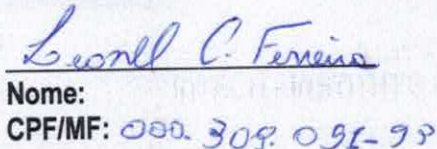 Leonell C. Ferreira
Nome:
CPF/MF: 000. 309. 091-93